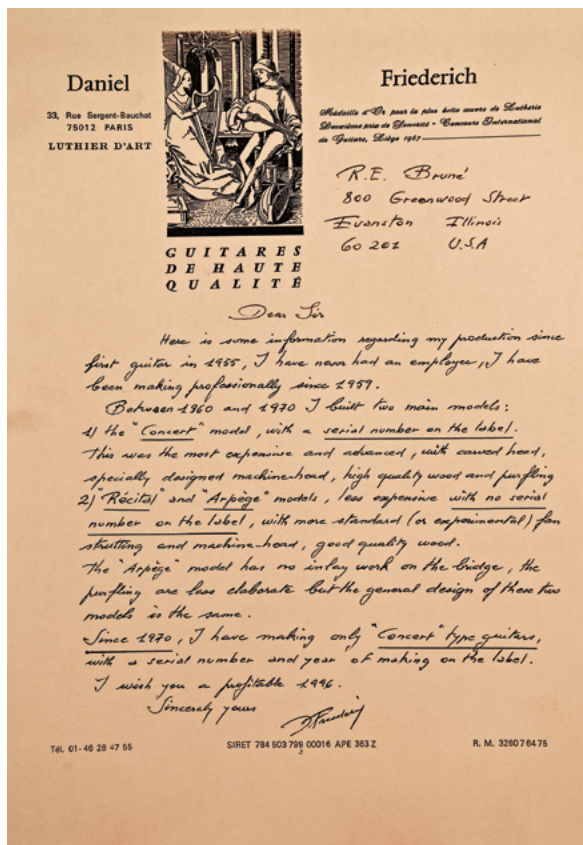 Daniel
33, Rue Sergent-Bauchat
75012 PARIS
LUTHIER D'ART
Friederich
Médaille d'Or pour la plus belle œuvre de Lutherie
Deuxième prix de Sonorité - Concours International
de Guitare, Liège 1967
GUITARES
DE HAUTE
QUALITÉ
R.E. Bruné
800 Greenwood Street
Evanston Illinois
60201 U.S.A
Dear Sir
Here is some information regarding my production since
first guitar in 1955, I have never had an employee, I have
been making professionally since 1959.
Between 1960 and 1970 I built two main models:
1) the "Concert" model, with a serial number on the label.
This was the most expensive and advanced, with carved head,
specially designed machine-head, high quality wood and purfling
2) "Récital" and "Arpège" models, less expensive with no serial
number on the label, with more standard (or experimental) fan
strutting and machine-head, good quality wood.
The "Arpège" model has no inlay work on the bridge, the
purfling are less elaborate but the general design of these two
models is the same.
Since 1970, I have making only "Concert" type guitars,
with a serial number and year of making on the label.
I wish you a profitable 1996.
Sincerely yours
D. Friederich
Tél. 01-46 28 47 55
SIRET 784 503 799 00016 APE 363 Z
R. M. 326076475